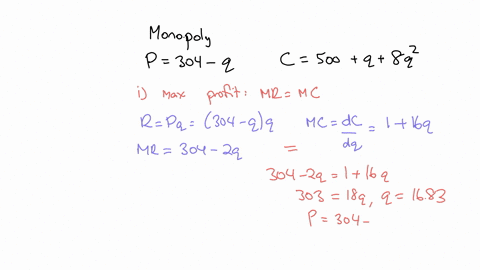 Monopoly
P = 304 - q C = 500 + q + 8q²
i) Max profit: MR = MC
R = Pq = (304 - q)q MC = dC/dq = 1 + 16q
MR = 304 - 2q =
304 - 2q = 1 + 16q
303 = 18q, q = 16.83
P = 304 -